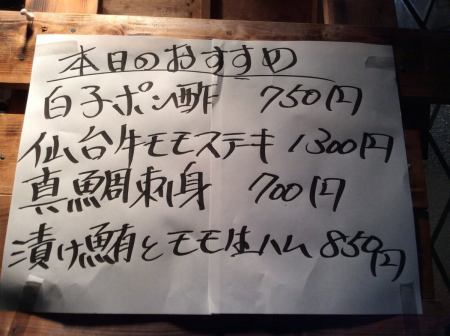 本日のおすすめ
白子ポン酢 750円
仙台牛モモステキ 1300円
真鯛刺身 700円
漬け鮪とモモ生ハム 850円